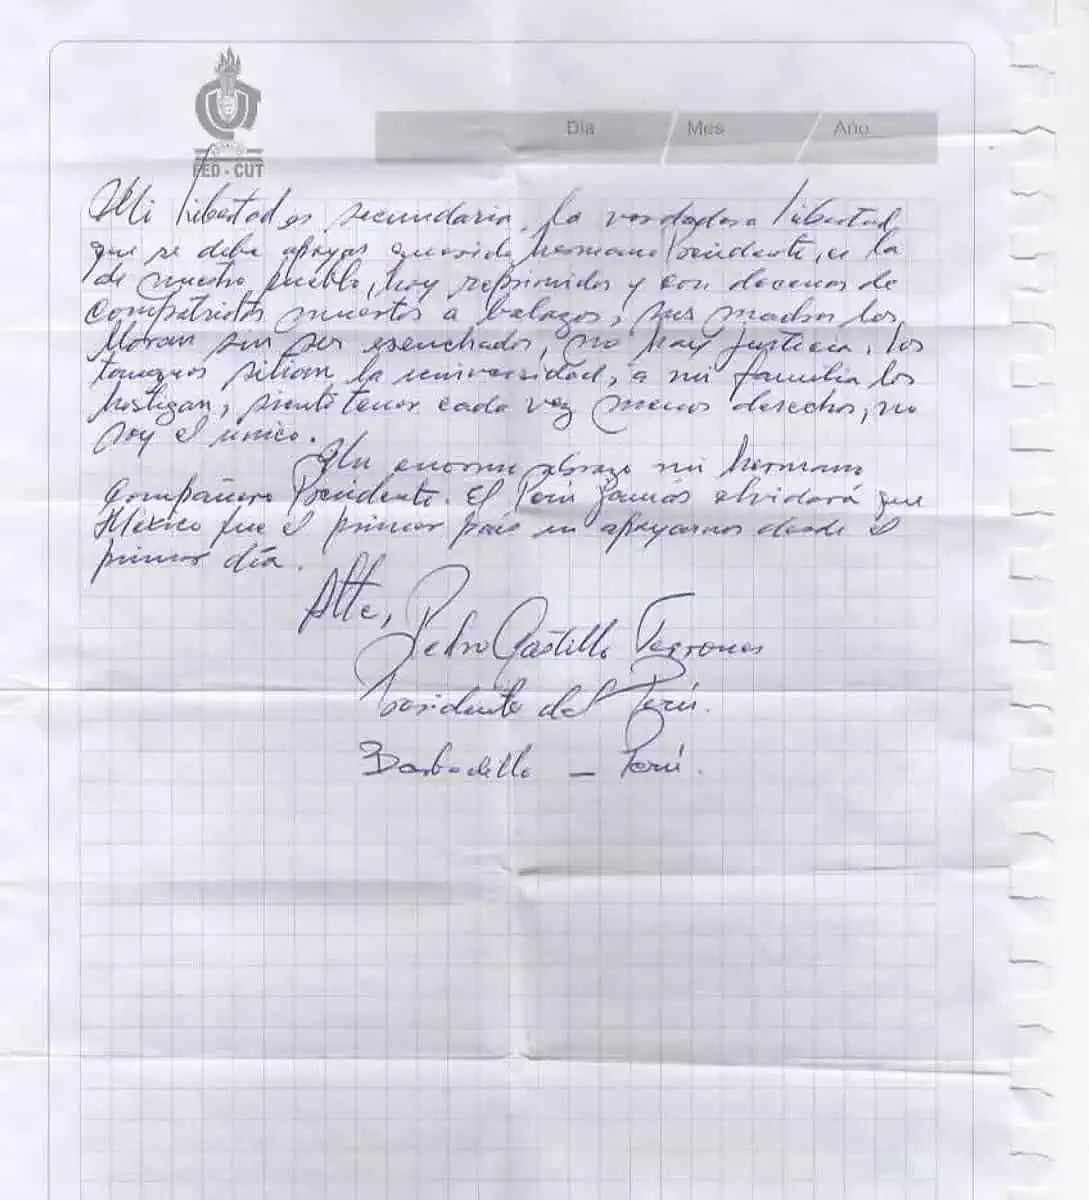 FED - CUT
Día / Mes / Año
Mi libertad es secundaria, la verdadera libertad
que se debe apoyar querido hermano Presidente, es la
de nuestro pueblo, hoy reprimidos y con docenas de
compatriotas muertos a balazos, sus madres los
lloran sin ser escuchados, no hay justicia, los
tanques sitian la universidad, a mi familia los
hostigan, siento tener cada vez menos derechos, no
soy el único.
Un enorme abrazo mi hermano
Compañero Presidente. El Perú jamás olvidará que
México fue el primer país en apoyarnos desde el
primer día.
Atte,
Pedro Castillo Terrones
Presidente del Perú.
Barbadillo – Perú.